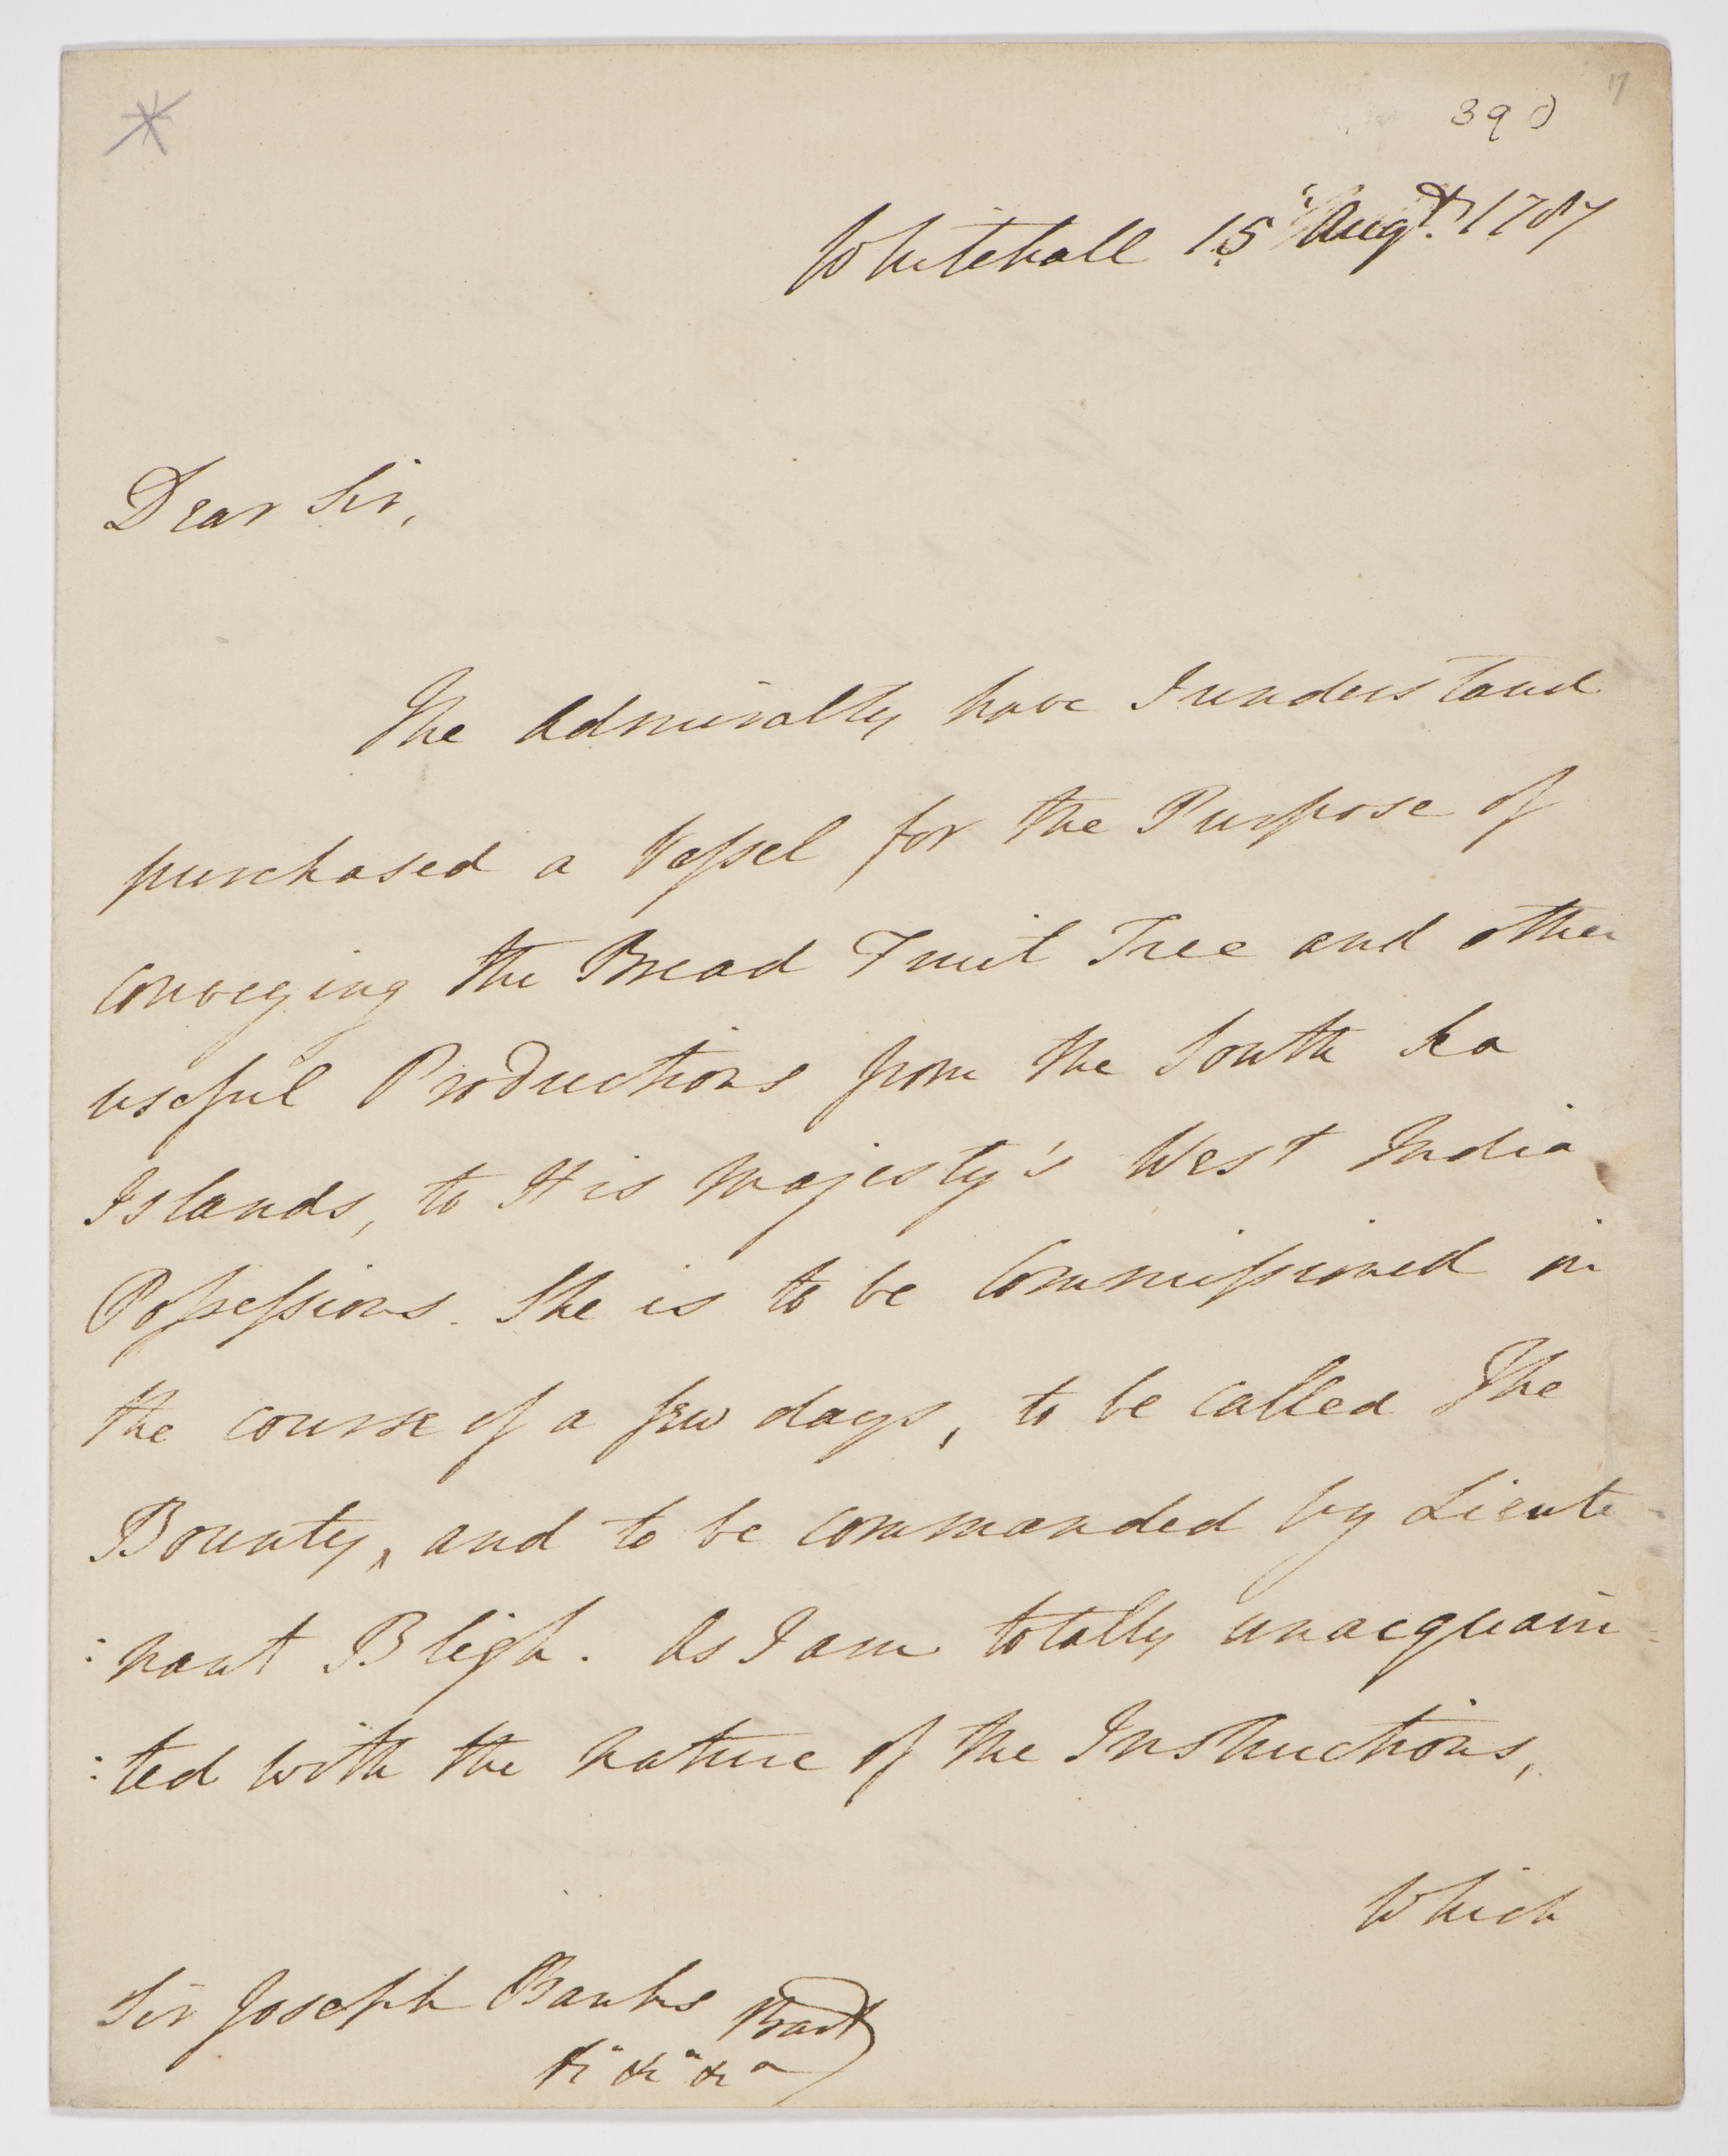 17
390
Whitehall 15 Augt. 1787
Dear Sir,
The Admiralty have I understand
purchased a Vessel for the Purpose of
conveying the Bread Fruit Tree and other
useful Productions from the South Sea
Islands, to His Majesty's West India
Possessions. She is to be Commissioned in
the course of a few days, to be called The
Bounty, and to be commanded by Lieute-
:nant Bligh. As I am totally unacquain=
:ted with the nature of the Instructions,
Which
Sir Joseph Banks Bart
&c &c &c